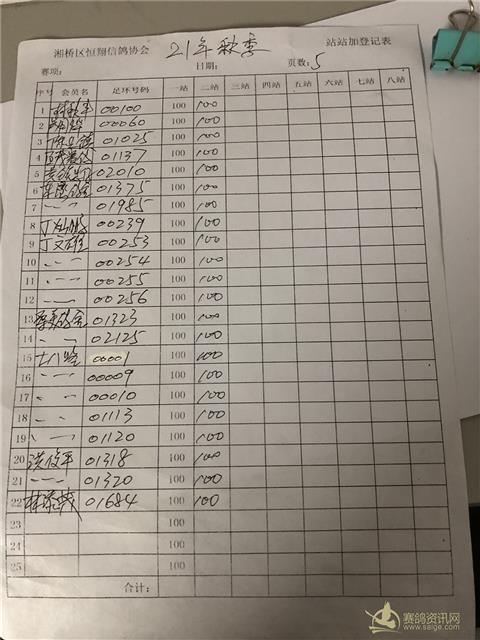 湘桥区恒翔信鸽协会 21年秋季 站站加登记表
赛项: 日期: 页数: 5
序号 会员名 足环号码 一站 二站 三站 四站 五站 六站 七站 八站
1 00100 100 100
2 00060 100 100
3 01025 100 100
4 01137 100 100
5 02010 100 100
6 01375 100 100
7 01985 100 100
8 00239 100 100
9 丁文雄 00253 100 100
10 00254 100 100
11 00255 100 100
12 00256 100 100
13 01323 100 100
14 02125 100 100
15 00001 100 100
16 00009 100 100
17 00010 100 100
18 01113 100 100
19 01120 100 100
20 洪俊平 01318 100 100
21 01320 100 100
22 01684 100 100
23 100
24 100
25 100
合计:
赛鸽资讯网
www.saige.com